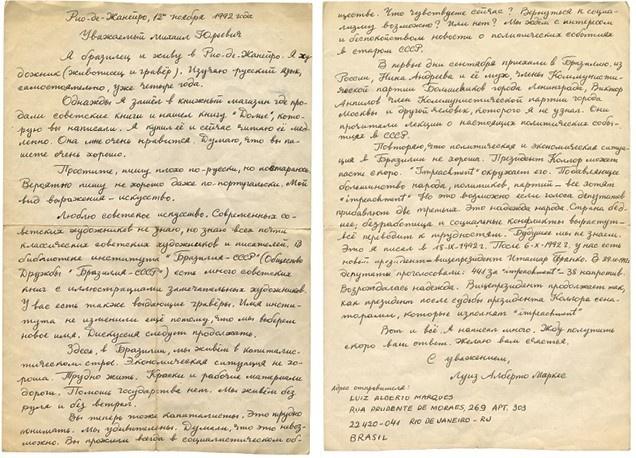 Рио-де-Жанейро, 12го ноября 1992 года
Уважаемый Михаил Юревич
Я бразилец и живу в Рио-де-Жанейро. Я ху-
дожник (живописец и гравёр). Изучаю русский язык,
самостоятельно, уже четыре года.
Однажды я зашёл в книжный магазин где про-
дали советские книги и нашёл книгу "Доме", кото-
рую вы написали. Я купил её и сейчас читаю её мед-
ленно. Она мне очень нравится. Думаю, что вы пи-
шете очень хорошо.
Простите, пишу плохо по-русски, но постараюсь.
Вероятно пишу не хорошо даже по-португальски. Мой
вид выражения - искусство.
Люблю советское искусство. Современных со-
ветских художников не знаю, но знаю всех почти
классических советских художников и писателей. В
библиотеке института "Бразилия-СССР" (Общество
Дружбы "Бразилия-СССР") есть много советских
книг с иллюстрациями замечательных художников.
У вас есть также выдающие гравёры. Имя инсти-
тута не изменили ещё потому, что мы выберем
новое имя. Дискусия следует продолжать.
Здесь, в Бразилии, мы живём в капиталис-
тическом строе. Экономическая ситуация не хо-
роша. Трудно жить. Краски и рабочие материали
дороги. Помощи государства нет. Мы живём без
руля и без ветрил.
Вы теперь тоже капиталисты. Это трудно
понимать. Мы удивлены. Думали, что это невоз-
можно. Вы прожили всегда в социалистическом об-
ществе. Что чувствуете сейчас? Вернуться к социа-
лизму возможно? Или нет? Мы ждём с интересом
и беспокойством новости о политических событиях
в старом СССР.
В первые дни сентября приехали в Бразилию, из
России, Нина Андреева и её муж, члены Коммунисти-
ческой партии Большевиков города Ленинграда, Виктор
Анпилов член Коммунистической партии города
Москвы и другой человек, которого я не узнал. Они
прочитали лекции о настоящих политических собы-
тиях в СССР.
Повторяю, что политическая и экономическая ситуа-
ция в Бразилии не хороша. Президент Коллор может
пасть скоро. "Impeachment" окружает его. Появляющее
большинство народа, политиков, партий - все хотят
"impeachment". Но это возможно если голоса депутатов
придавают две третьих. Это надежда народа. Страна бед-
нее, безработица и социальные конфликты вырастут-
всё переводит к трудностям. Будущее мы не знаем.
Это я писал в 18-IX-1992 г. После 6-X-1992 г. у нас есть
новый президент - вицепрезидент Итамар Франко. В 29-IX-1992
депутаты проголосовали: 441 за "impeachment" - 38 напротив.
Возраждалась надежда. Вицепрезидент продолжает так,
как президент после судьбы президента Коллора сена-
торами, которые исполнят "impeachment"
Вот и всё. Я написал много. Жду получить
скоро ваш ответ. Желаю вам счастья.
С уважением,
Луиз Алберто Маркес
Адрес отправителя:
LUIZ ALBERTO MARQUES
RUA PRUDENTE DE MORAES, 269 APT. 303
22420-041 RIO DE JANEIRO - RJ
BRASIL